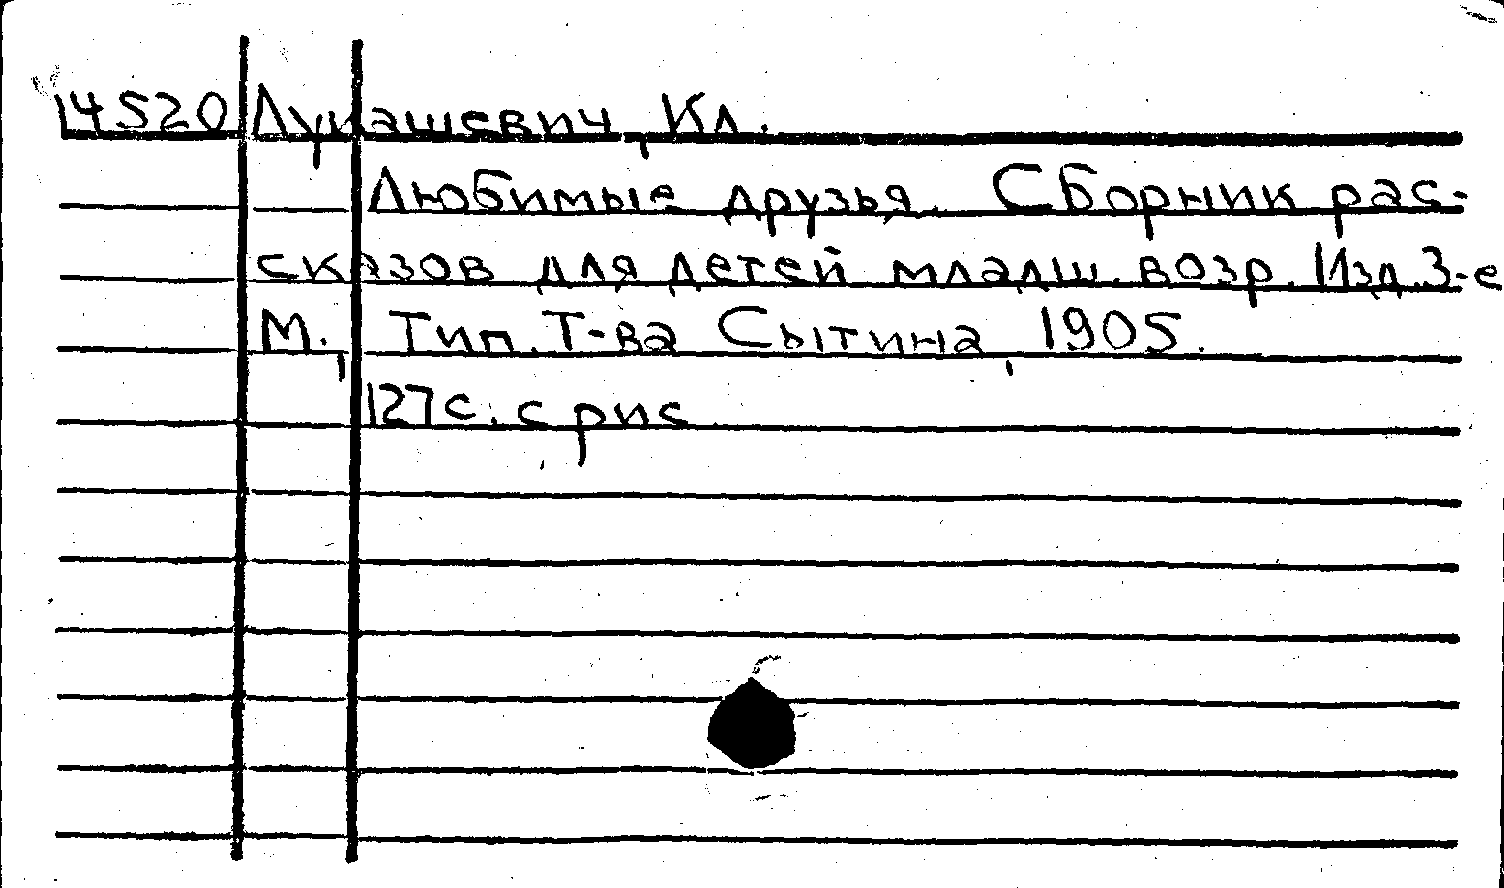 14520 Лукашевич, Кл.
Любимые друзья. Сборник рас-
сказов для детей младш. возр. Изд. 3-е
М., Тип. Т-ва Сытина, 1905.
127с. с рис